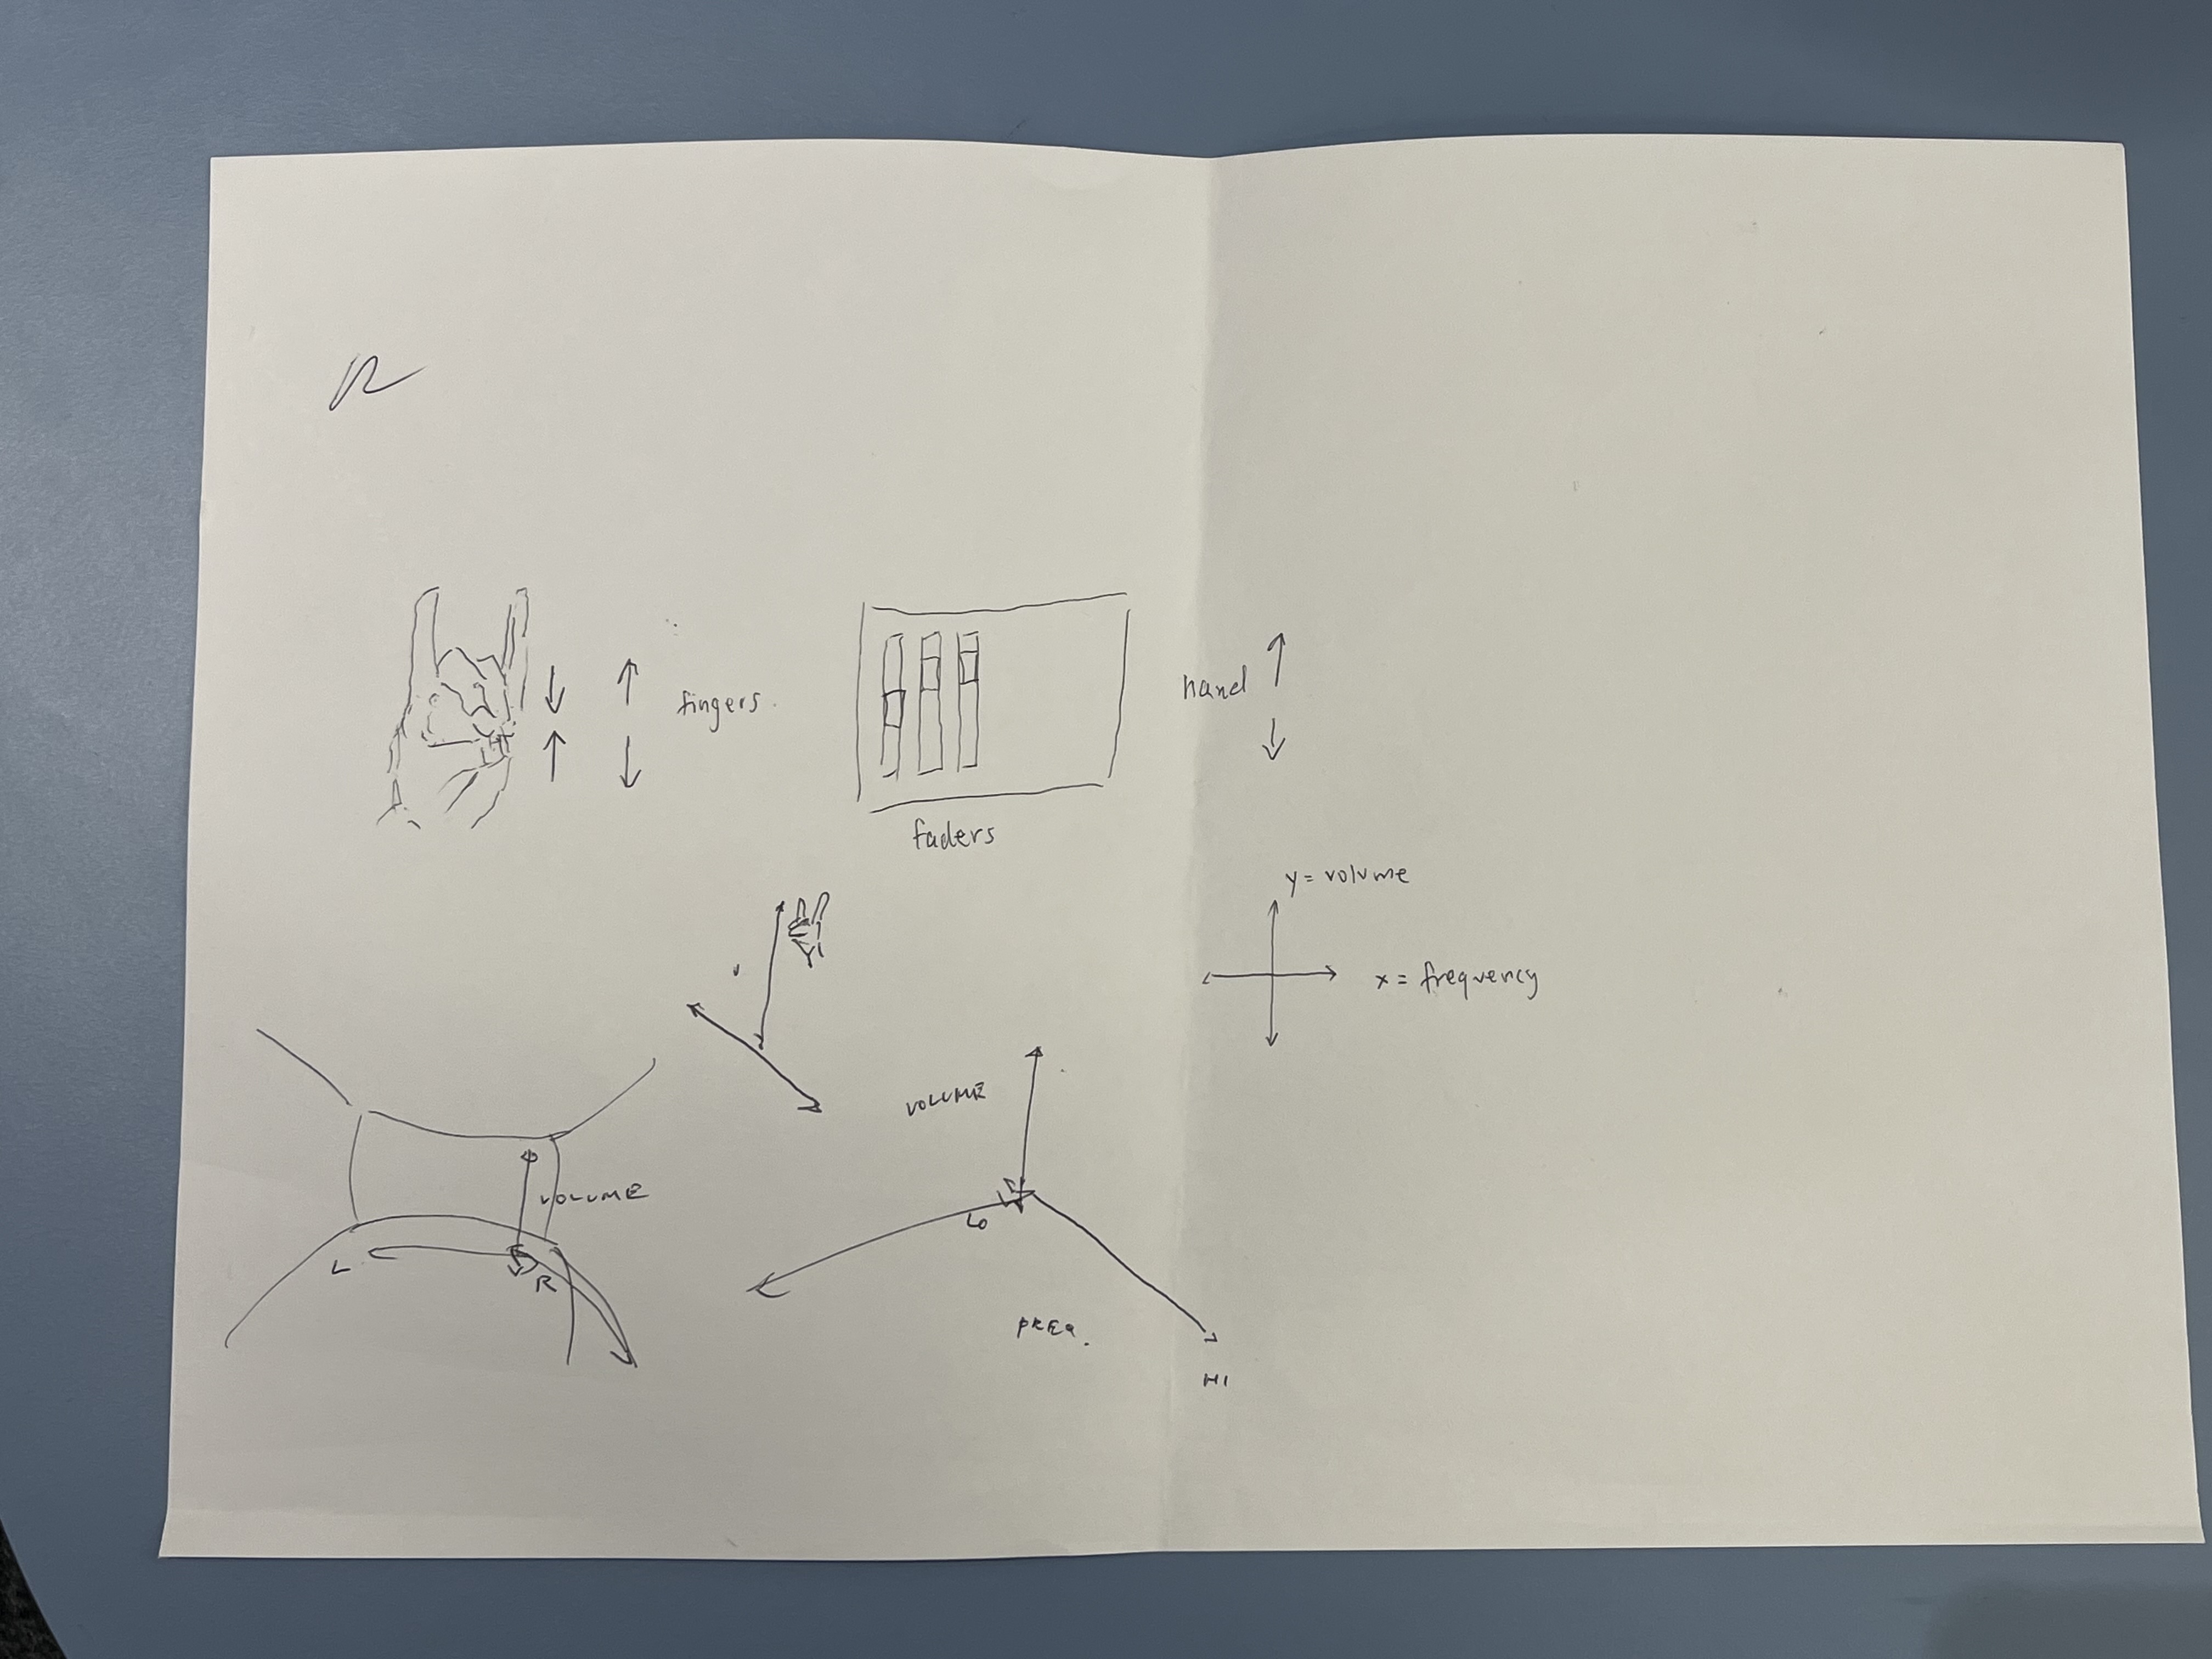 fingers.
hand
faders
y = volume
x = frequency
VOLUME
VOLUME
LO
L
R
FREQ.
HI